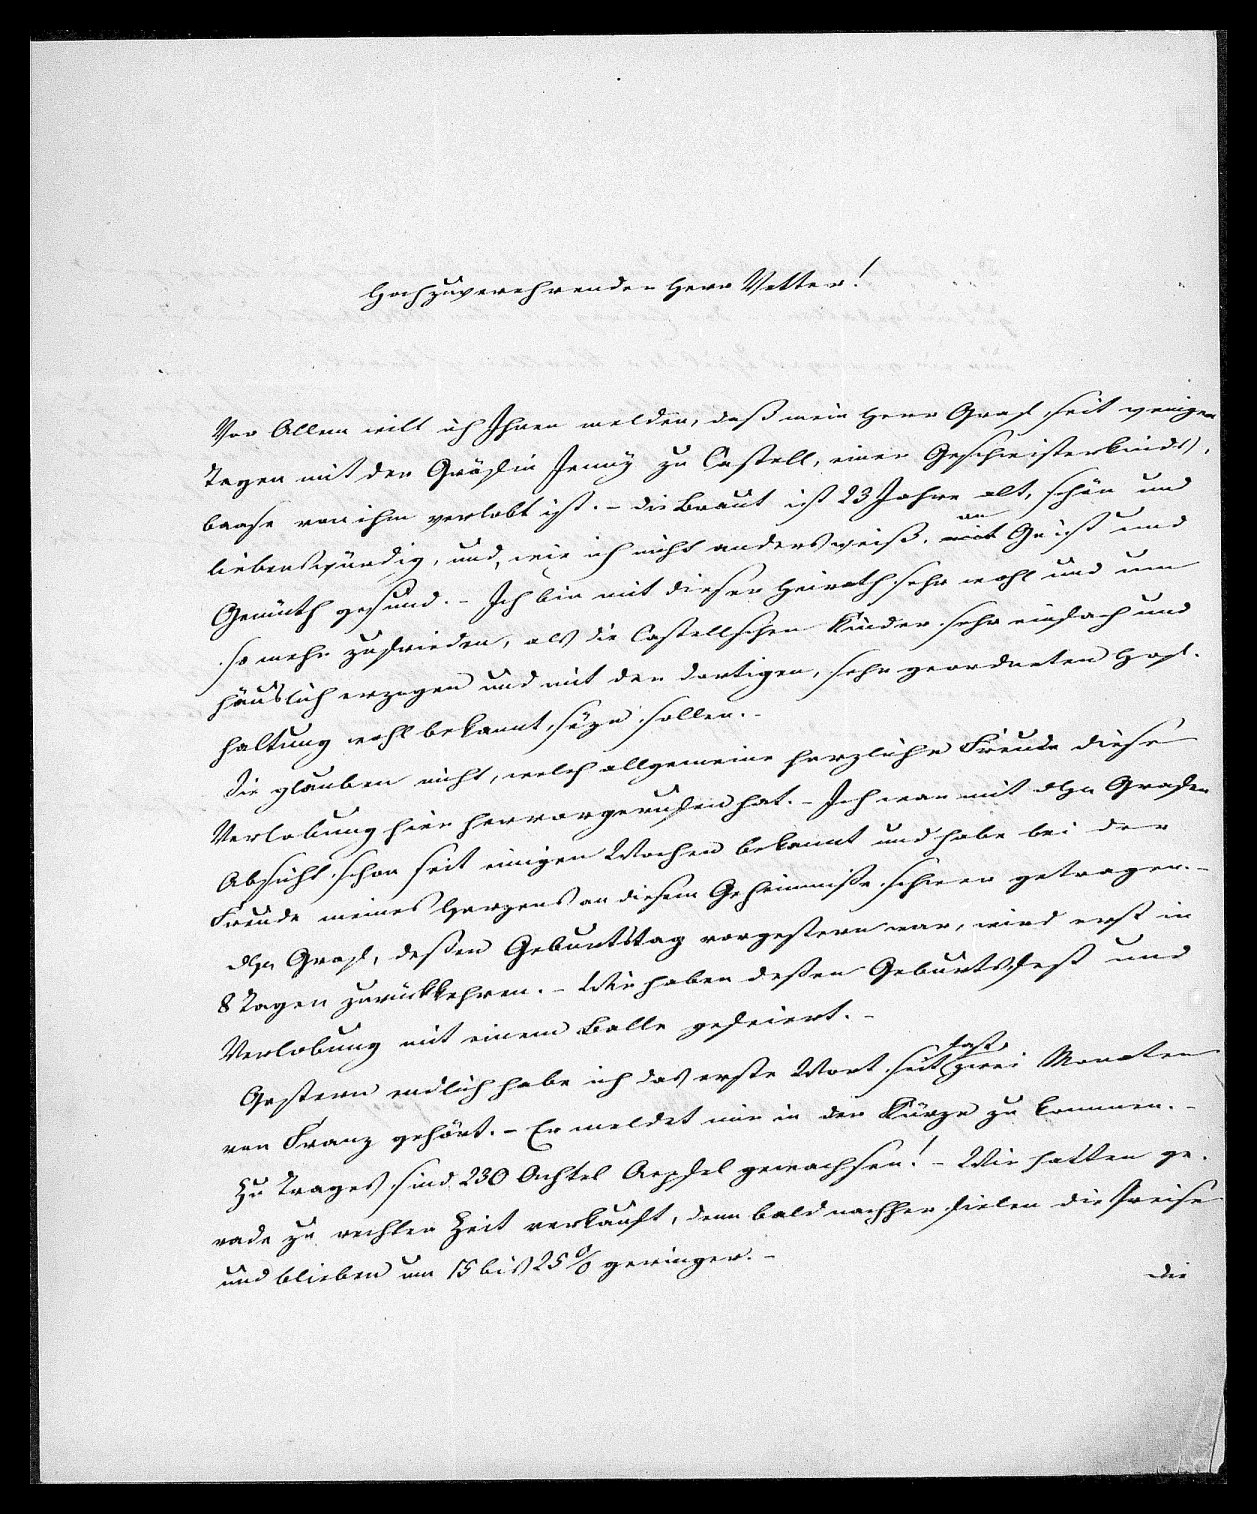 Hochzuverehrender Herr Vetter!
Vor Allem will ich Ihnen melden, daß mein Herr Graf seit wenigen
Tagen mit der Gräfin Jenny zu Castell, einer Geschwisterkinds-
baase von ihm verlobt ist. – die Braut ist 23 Jahre alt, schön und
liebenswürdig, und, wie ich nicht anders weiß, an Geist und
Gemüth gesund. – Ich bin mit dieser Heirath sehr wohl und um
so mehr zufrieden, als die Castellschen Kinder sehr einfach und
häuslich erzogen und mit der dortigen, sehr geordneten Hof-
haltung wohl bekannt seyn sollen. –
Sie glauben nicht, welch allgemeine herzliche Freude diese
Verlobung hier hervorgerufen hat. – Ich war mit des Grafen
Absicht schon seit einigen Wochen bekannt und habe bei der
Freude meines Herzens an diesem Geheimniße schwer getragen. –
Graf, deßen Geburtstag vorgestern war, wird erst in
8 Tagen zurückkehren. – Wir haben deßen Geburtsfest und
Verlobung mit einem Balle gefeiert. –
Gestern endlich habe ich das erste Wort seit fast zwei Monaten
von Franz gehört. – Er meldet mir in der Kürze zu kommen. –
Zu Trages sind 230 Achtel Aepfel gewachsen! – Wir hatten ge-
rade zu rechter Zeit verkauft, denn bald nachher fielen die Preise
und blieben um 15 bis 25 % geringer. –
Die